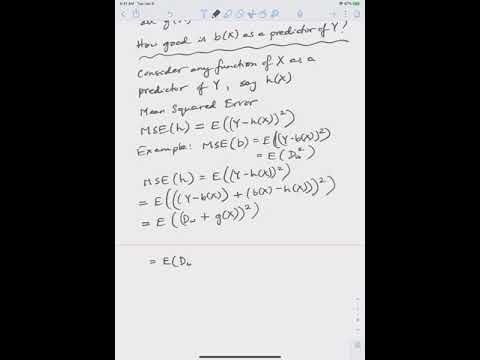 9:41 AM Tue Jan 9
How good is b(X) as a predictor of Y?
Consider any function of X as a
predictor of Y, say h(X)
Mean Squared Error
MSE(h) = E((Y-h(X))²)
Example: MSE(b) = E((Y-b(X))²)
= E(D_w²)
MSE(h) = E((Y-h(X))²)
= E(((Y-b(X)) + (b(X)-h(X)))²)
= E((D_w + g(X))²)
= E(D_w